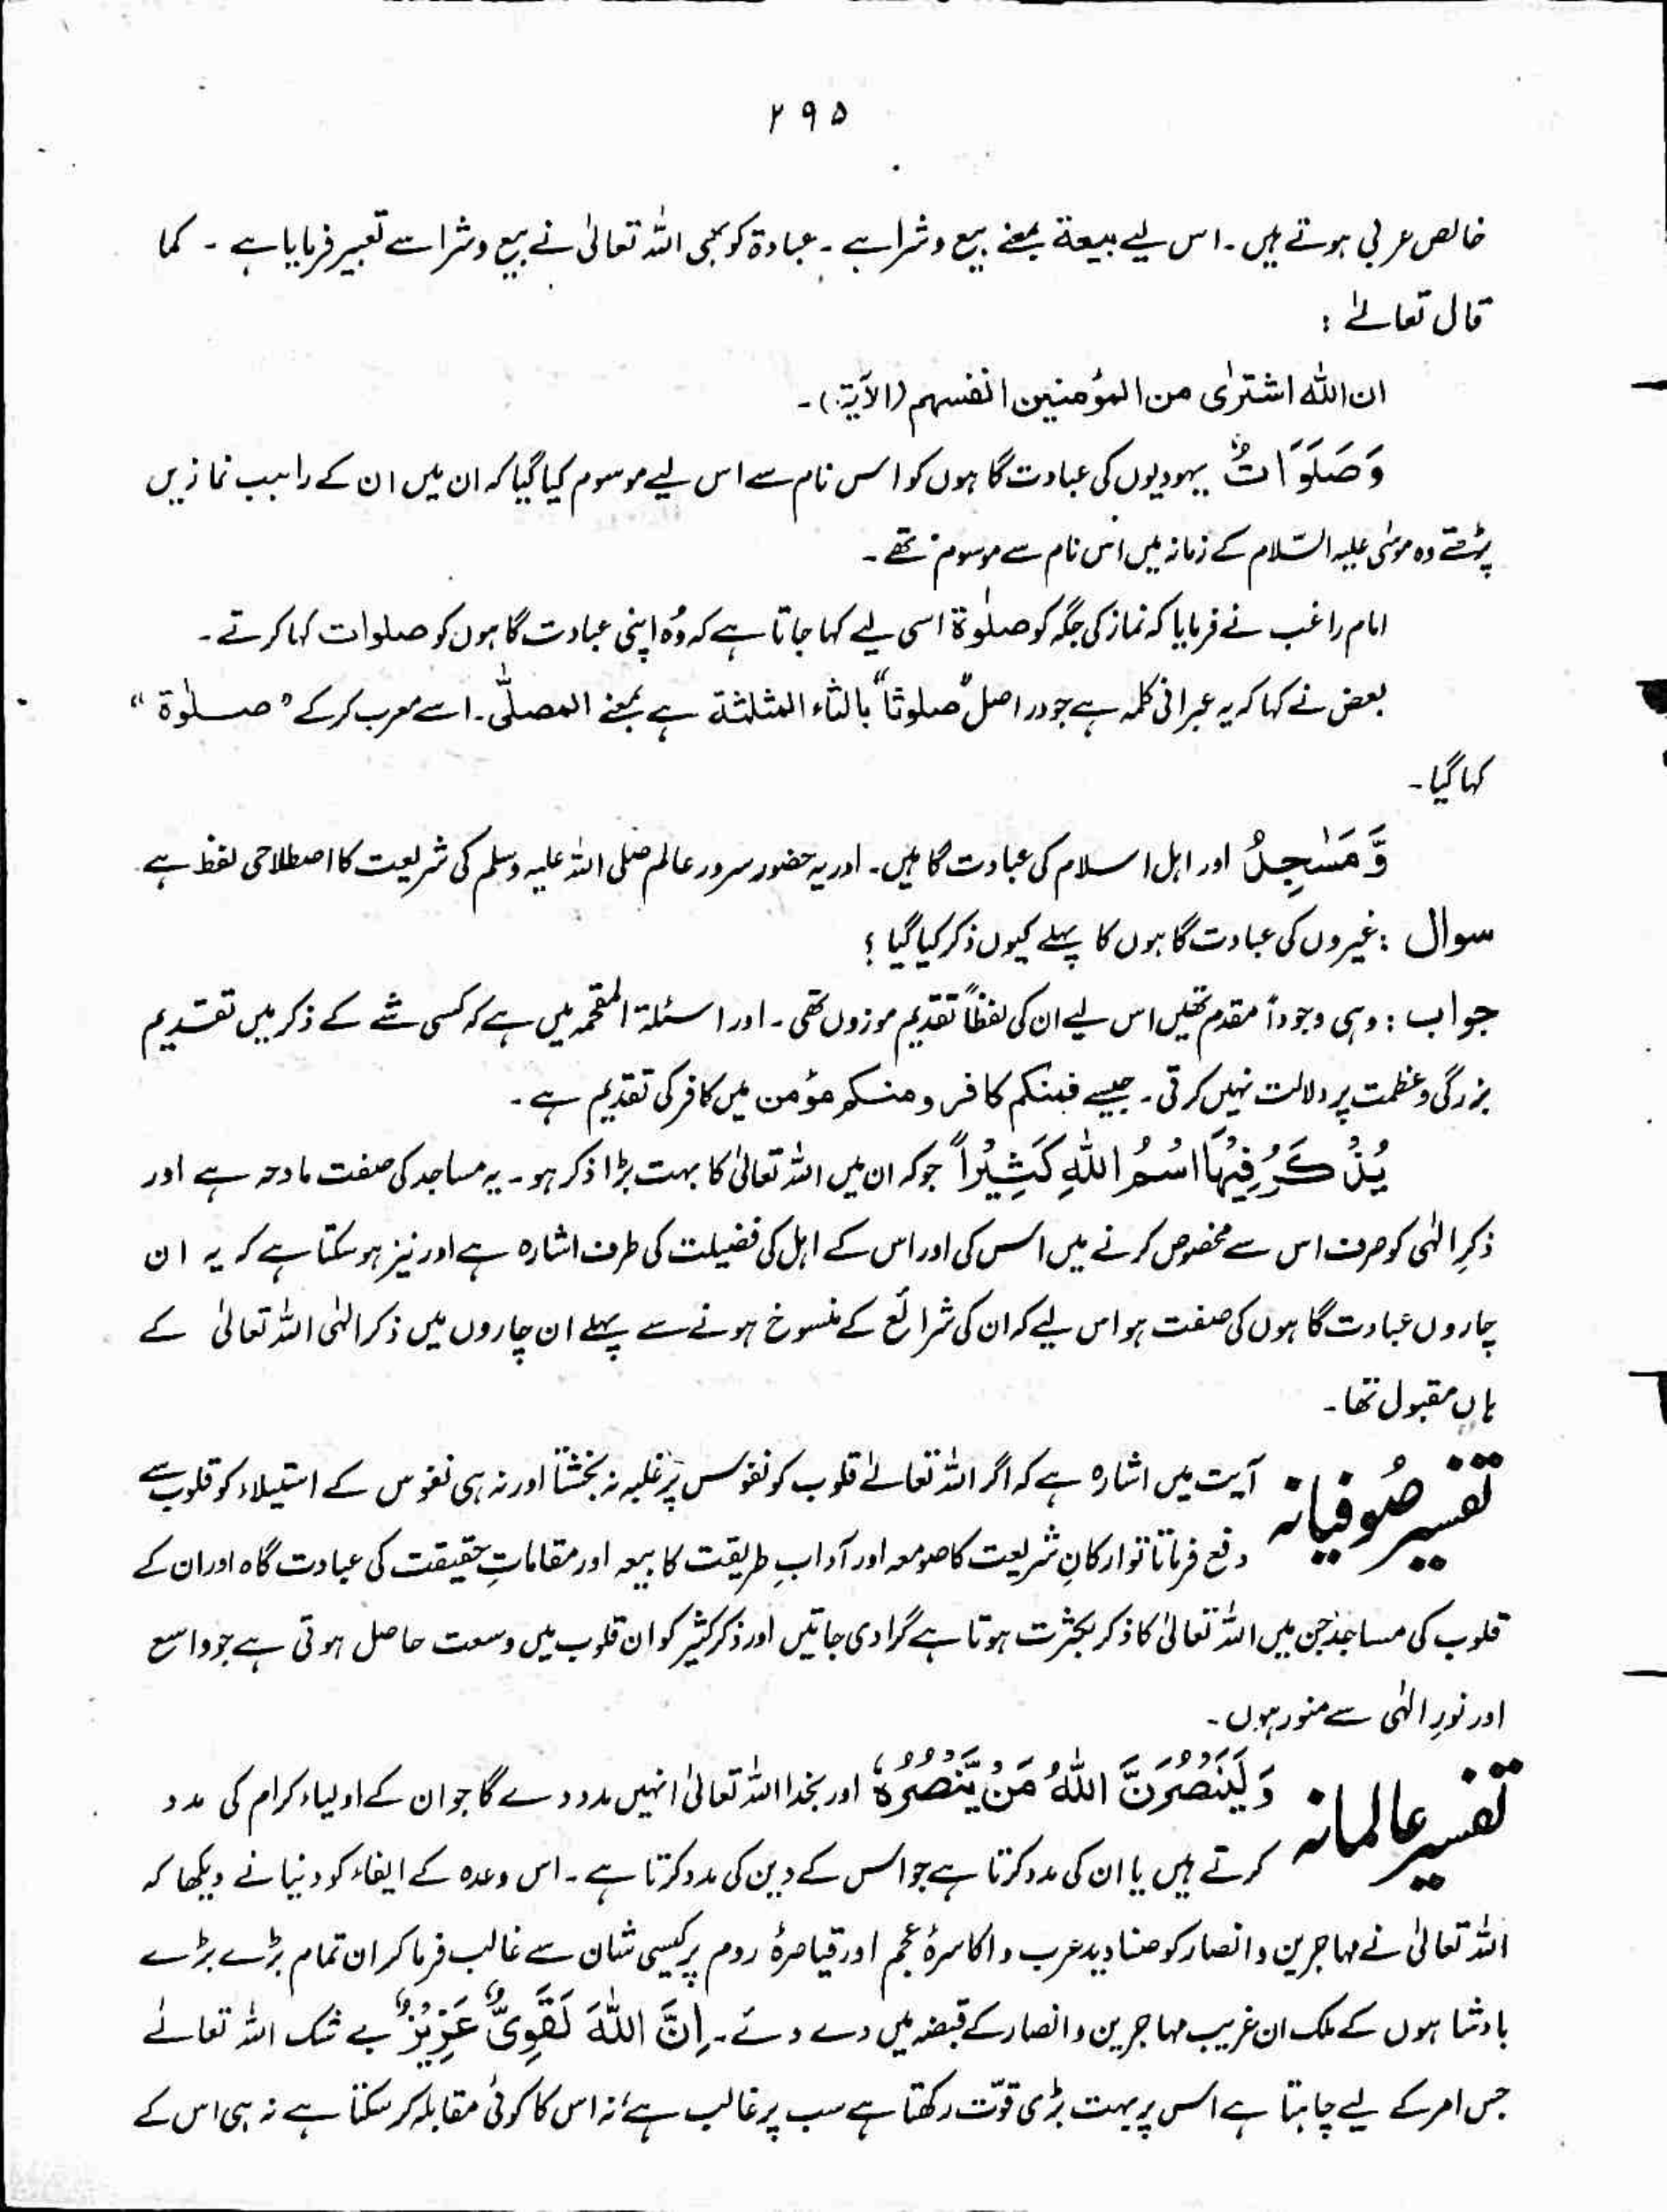 ۲۹۵
خالص عربی ہوتے ہیں ۔ اس لیے بیعة بمعنے بیع و شرا ہے ۔ عبادۃ کو بھی اللہ تعالیٰ نے بیع و شرا سے تعبیر فرمایا ہے ۔ کما
قال تعالےٰ :
ان اللہ اشترٰی من المؤمنین انفسہم (الآیۃ) ۔
وَصَلَوَاتٌ یہودیوں کی عبادت گاہوں کو اس نام سے اس لیے موسوم کیا گیا کہ ان میں ان کے راہب نمازیں
پڑھتے وہ موسٰی علیہ السّلام کے زمانہ میں اس نام سے موسوم تھے ۔
امام راغب نے فرمایا کہ نماز کی جگہ کو صلٰوۃ اسی لیے کہا جاتا ہے کہ وُہ اپنی عبادت گاہوں کو صلوات کہا کرتے ۔
بعض نے کہا کہ یہ عبرانی کلمہ ہے جو دراصل "صلوثا" بالثاء المثلثۃ ہے بمعنے المصلّٰی ۔ اسے معرب کر کے "صلوٰۃ"
کہا گیا ۔
وَّ مَسٰجِدُ اور اہل اسلام کی عبادت گاہیں ۔ اور یہ حضور سرور عالم صلی اللہ علیہ وسلم کی شریعت کا اصطلاحی لفظ ہے ۔
سوال : غیروں کی عبادت گاہوں کا پہلے کیوں ذکر کیا گیا ؟
جواب : وہی وجوداً مقدم تھیں اس لیے ان کی لفظاً تقدیم موزوں تھی ۔ اور اسئلۃ المقحمہ میں ہے کہ کسی شے کے ذکر میں تقدیم
بزرگی و عظمت پر دلالت نہیں کرتی ۔ جیسے فمنکم کافر و منکم مؤمن میں کافر کی تقدیم ہے ۔
یُذْکَرُ فِیْہَا اسْمُ اللّٰہِ کَثِیْرًا جو کہ ان میں اللہ تعالیٰ کا بہت بڑا ذکر ہو ۔ یہ مساجد کی صفت مادحہ ہے اور
ذکرِ الٰہی کو صرف اس سے مخصوص کرنے میں اس کی اور اس کے اہل کی فضیلت کی طرف اشارہ ہے اور نیز ہو سکتا ہے کہ یہ ان
چاروں عبادت گاہوں کی صفت ہو اس لیے کہ ان کی شرائع کے منسوخ ہونے سے پہلے ان چاروں میں ذکر الٰہی اللہ تعالیٰ کے
ہاں مقبول تھا ۔
تفسیر صُوفیانہ آیت میں اشارہ ہے کہ اگر اللہ تعالےٰ قلوب کو نفوس پر غلبہ نہ بخشتا اور نہ ہی نفوس کے استیلاء کو قلوب سے
دفع فرماتا تو ارکانِ شریعت کا صومعہ اور آدابِ طریقت کا بیعہ اور مقاماتِ حقیقت کی عبادت گاہ اور ان کے
قلوب کی مساجد جن میں اللہ تعالیٰ کا ذکر بکثرت ہوتا ہے گرا دی جاتیں اور ذکر کثیر کو ان قلوب میں وسعت حاصل ہوتی ہے جو واسع
اور نورِ الٰہی سے منور ہوں ۔
تفسیر عالمانہ وَلَیَنْصُرَنَّ اللّٰہُ مَنْ یَّنْصُرُہٗ اور بخدا اللہ تعالیٰ انہیں مدد دے گا جو ان کے اولیاء کرام کی مدد
کرتے ہیں یا ان کی مدد کرتا ہے جو اس کے دین کی مدد کرتا ہے ۔ اس وعدہ کے ایفاء کو دنیا نے دیکھا کہ
اللہ تعالیٰ نے مہاجرین و انصار کو صنادید عرب و اکاسرۂ عجم اور قیاصرۂ روم پر کیسی شان سے غالب فرما کر ان تمام بڑے بڑے
بادشاہوں کے ملک ان غریب مہاجرین و انصار کے قبضہ میں دے دئے ۔ اِنَّ اللّٰہَ لَقَوِیٌّ عَزِیْزٌ بے شک اللہ تعالےٰ
جس امر کے لیے چاہتا ہے اس پر بہت بڑی قوّت رکھتا ہے سب پر غالب ہے نہ اس کا کوئی مقابلہ کر سکتا ہے نہ ہی اس کے